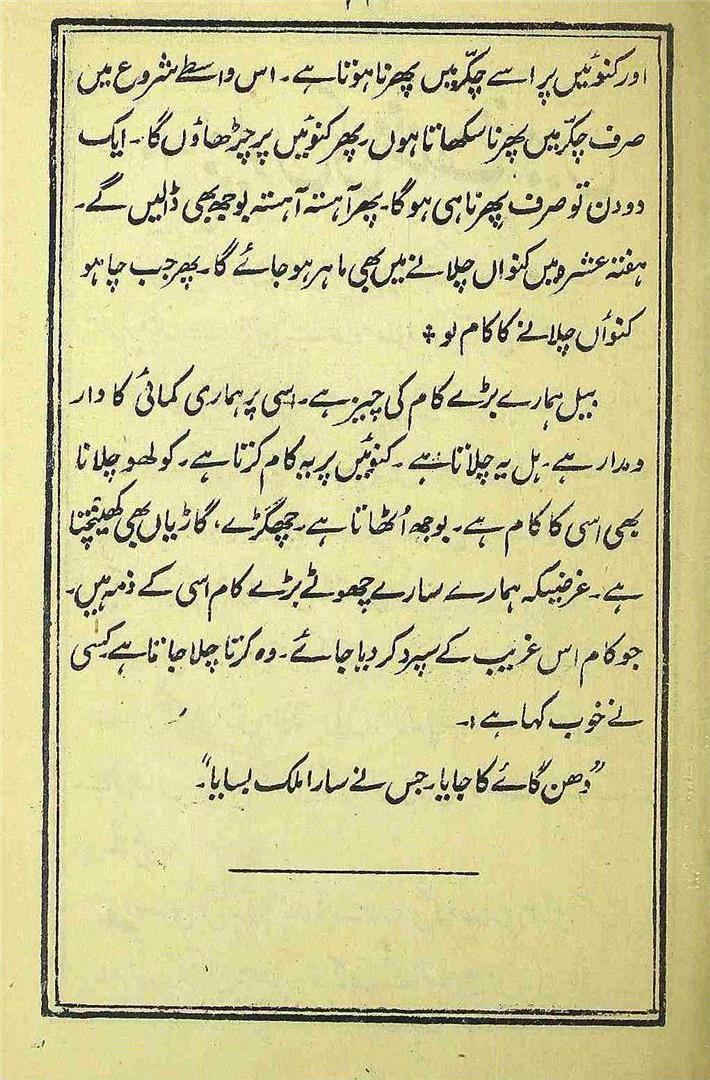 اور کنوئیں پر اسے چکّر میں پھرنا ہوتا ہے۔ اس واسطے شروع میں
صرف چکّر میں پھرنا سکھاتا ہوں۔ پھر کنوئیں پر چڑھاؤں گا۔ ایک
دو دن تو صرف پھرنا ہی ہوگا۔ پھر آہستہ آہستہ بوجھ بھی ڈالیں گے۔
ہفتہ عشرہ میں کنواں چلانے میں بھی ماہر ہو جائے گا۔ پھر جب چاہو
کنوأں چلانے کا کام لو ٭
بیل ہمارے بڑے کام کی چیز ہے۔ اسی پر ہماری کمائی کا دار
و مدار ہے۔ ہل یہ چلاتا ہے۔ کنوئیں پر یہ کام کرتا ہے۔ کولھو چلانا
بھی اسی کا کام ہے۔ بوجھ اُٹھاتا ہے۔ چھگڑے، گاڑیاں بھی کھینچتا
ہے۔ غرضیکہ ہمارے سارے چھوٹے بڑے کام اسی کے ذمہ ہیں۔
جو کام اس غریب کے سپرد کر دیا جائے۔ وہ کرتا چلا جاتا ہے کسی
نے خوب کہا ہے:۔
”دھن گائے کا جایا۔ جس نے سارا ملک بسایا“۔